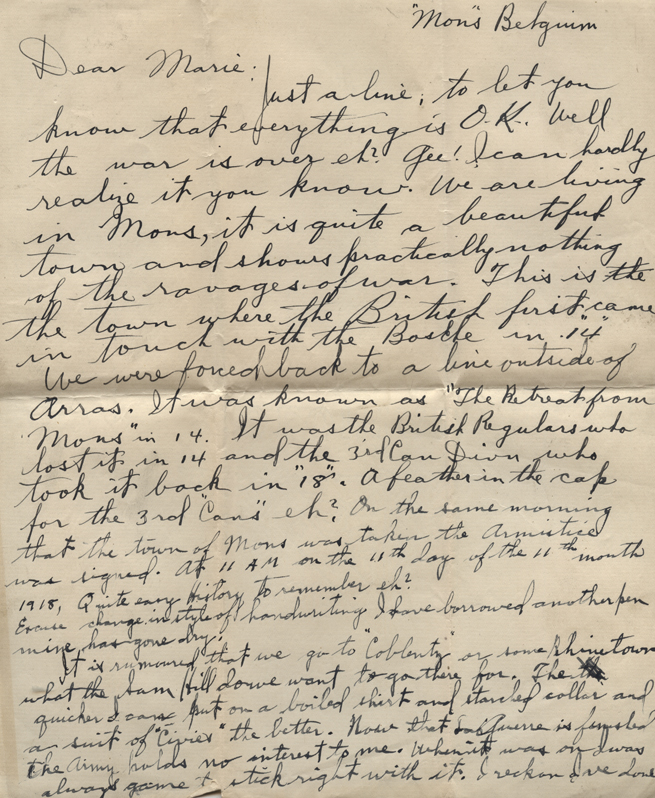 "Mons" Belguim
Dear Marie:
Just a line, to let you
know that everything is O.K. Well
the war is over eh? Gee! I can hardly
realize it you know. We are living
in Mons, it is quite a beautiful
town and shows practically nothing
of the ravages of war. This is the
the town where the British first came
in touch with the Bosche in "14"
We were forced back to a line outside of
Arras. It was known as "The Retreat from
Mons" in 14. It was the British Regulars who
lost it in 14 and the 3rd Can Divn who
took it back in "18". A feather in the cap
for the 3rd "Cans" eh? On the same morning
that the town of Mons was taken the Armistice
was signed. At 11 AM on the 11th day of the 11th month
1918, Quite easy History to remember eh?
Excuse change in style of handwriting I have borrowed another pen
mine has gone dry.
It is rumoured that we go to "Coblenty" or some Rhine town
what the Sam Hill do we want to go there for. The
quicker I can put on a boiled shirt and starched collar and
a suit of "Civies" the better. Now that La Guerre is finished
the Army holds no interest to me. When it was on I was
always game to stick right with it. I reckon I've done